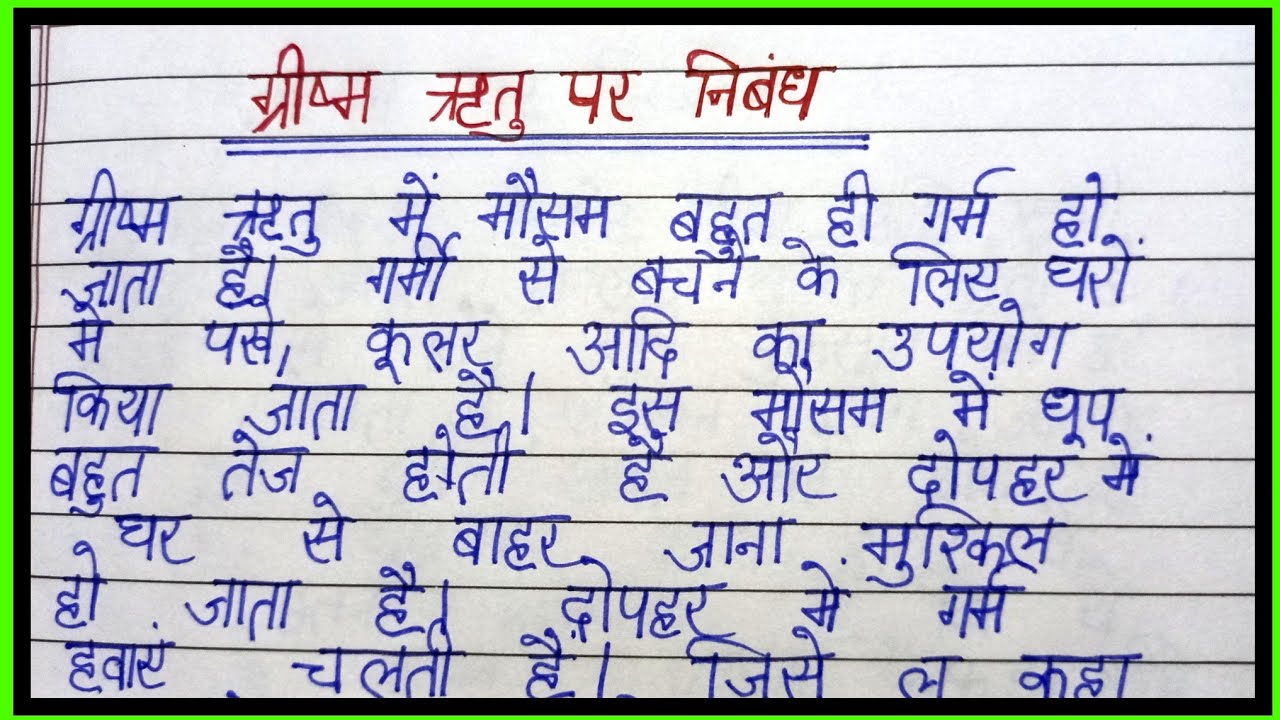 ग्रीष्म ऋतु पर निबंध
ग्रीष्म ऋतु में मौसम बहुत ही गर्म हो
जाता है। गर्मी से बचने के लिए घरों
में पंखे, कूलर आदि का उपयोग
किया जाता है। इस मौसम में धूप
बहुत तेज होती है और दोपहर में
घर से बाहर जाना मुश्किल
हो जाता है। दोपहर में गर्म
हवाएं चलती है। जिसे लू कहा